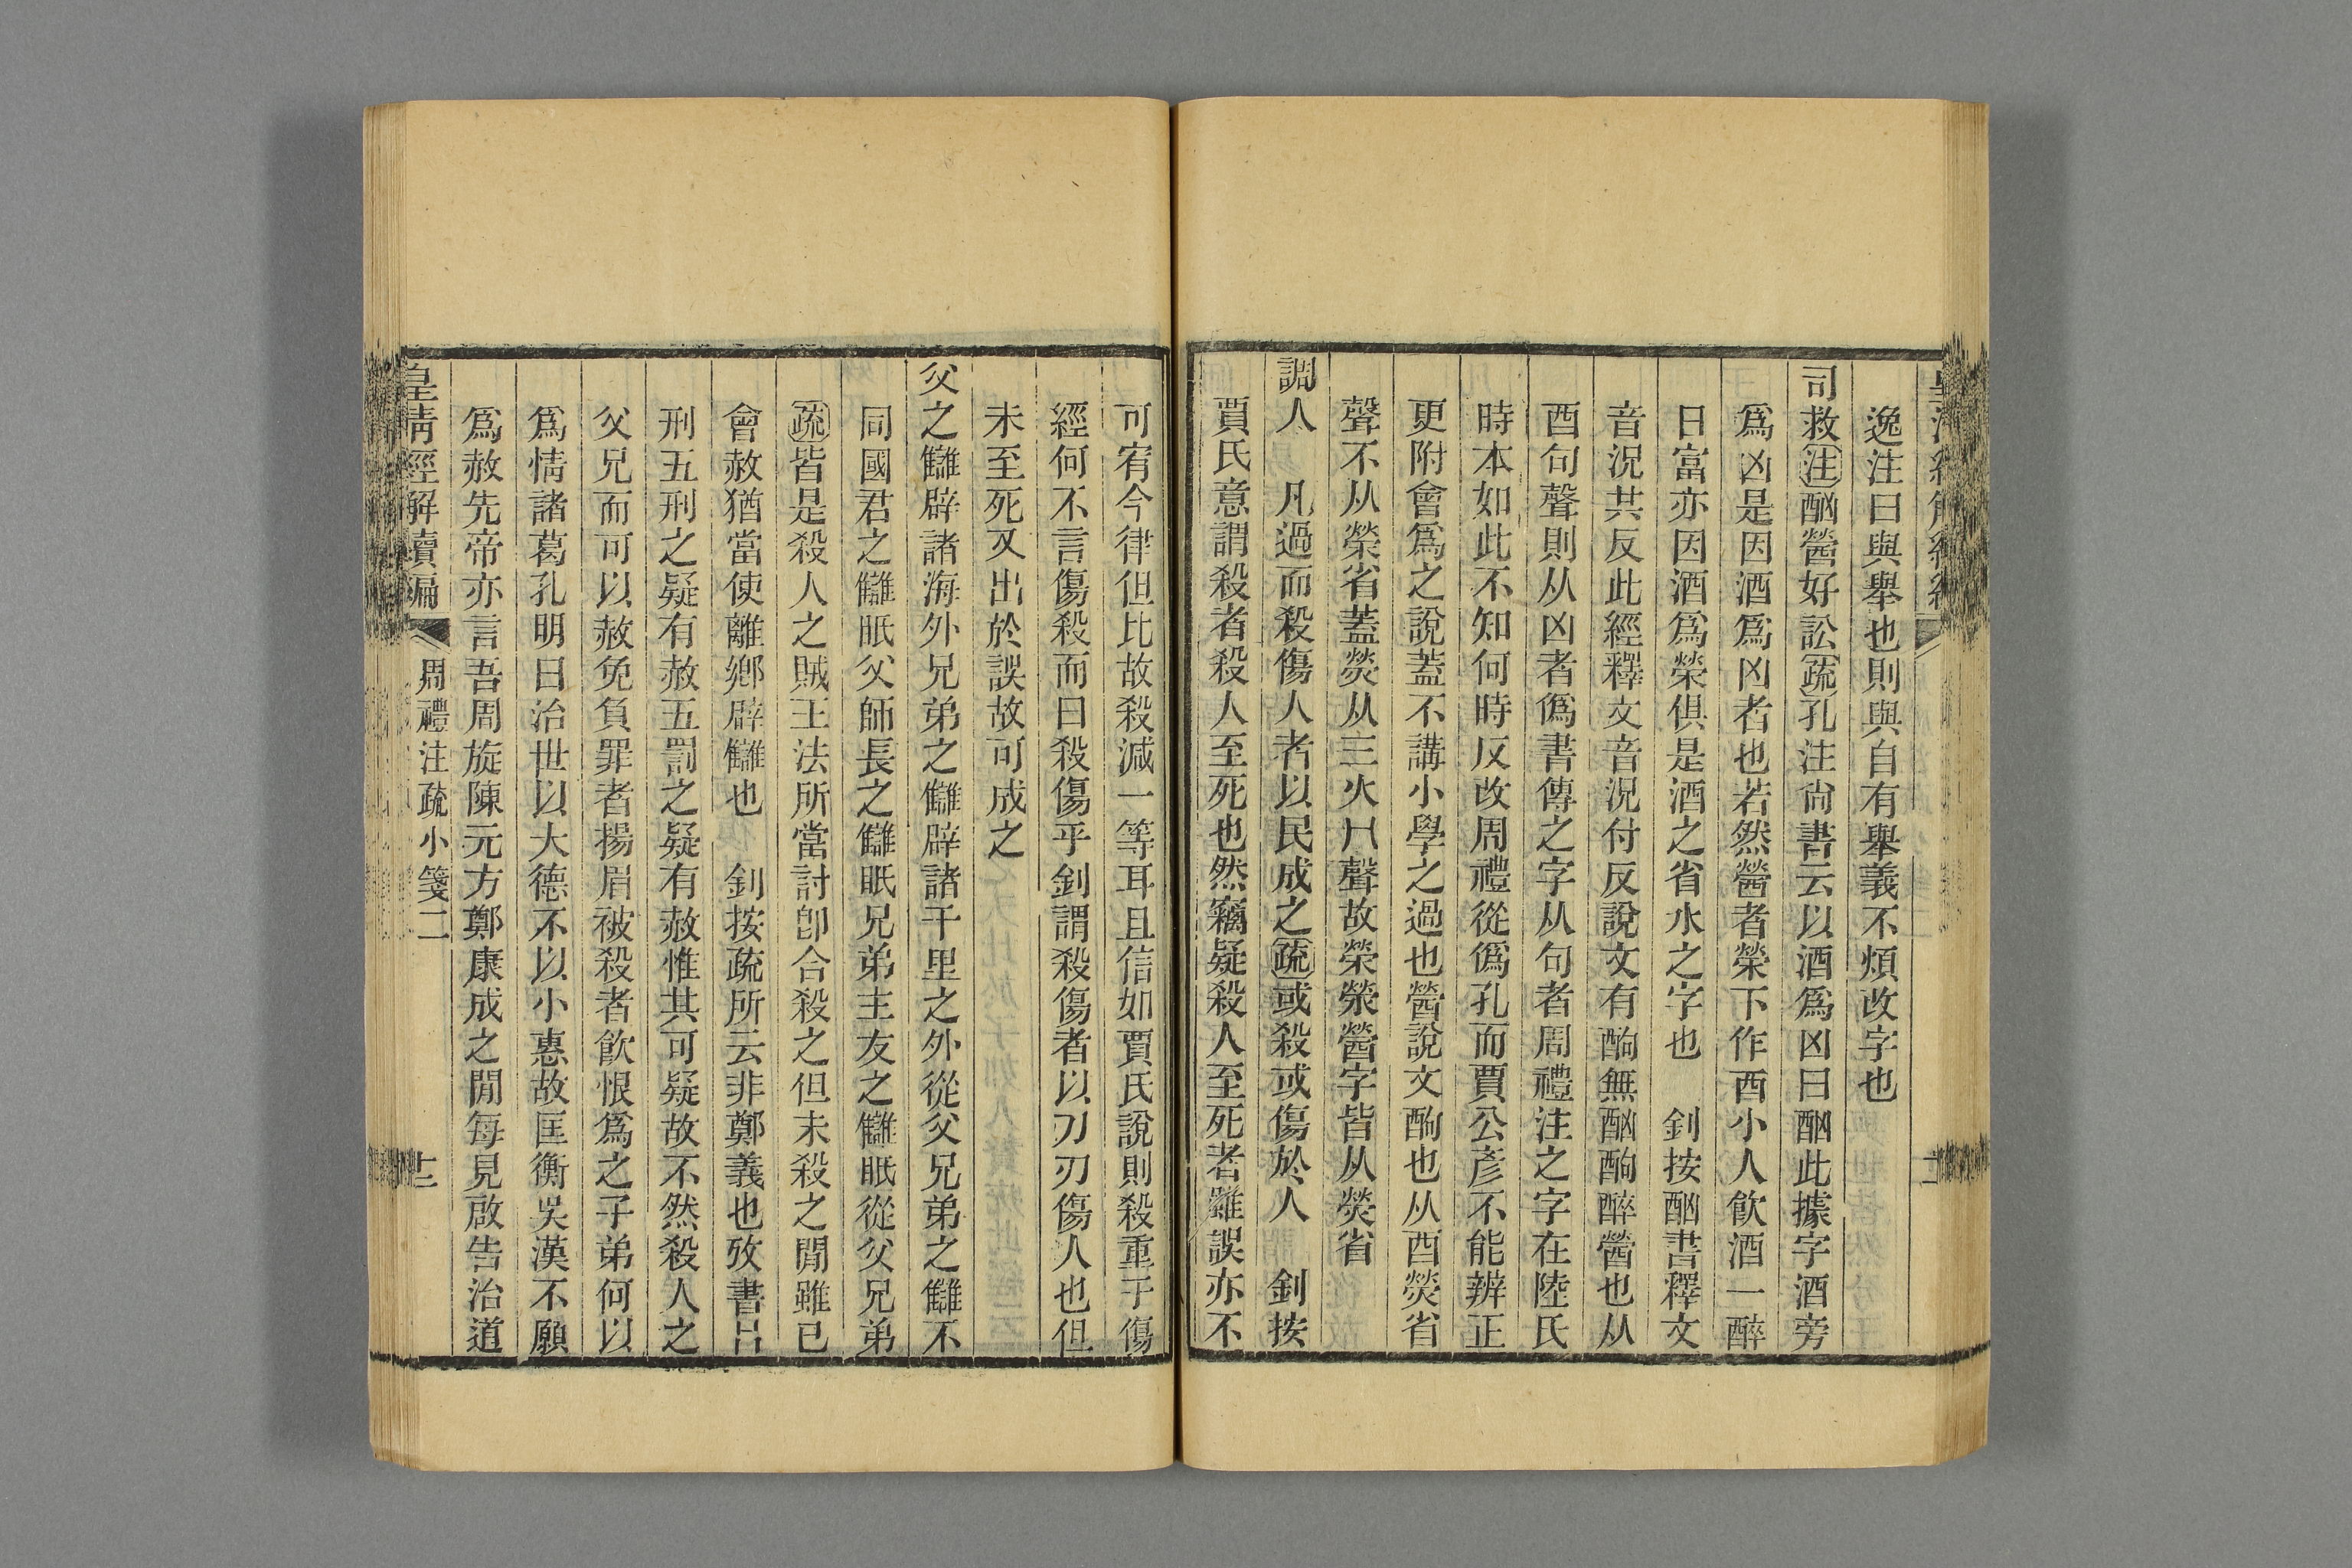 逸注曰與舉也則與自有舉義不煩改字也
司救注酗醟好訟疏孔注尙書云以酒爲凶曰酗此據字酒旁
爲凶是因酒爲凶者也若然醟者榮下作酉小人飮酒一醉
日富亦因酒爲榮俱是酒之省水之字也　釗按酗書釋文
音況共反此經釋文音況付反說文有酌無酗酌醉醟也从
酉句聲則从凶者僞書傳之字从句者周禮注之字在陸氏
時本如此不知何時反改周禮從僞孔而賈公彥不能辨正
更附會爲之說蓋不講小學之過也醟說文酌也从酉熒省
聲不从榮省蓋熒从三火冂聲故榮滎醟字皆从熒省
調人　凡過而殺傷人者以民成之疏或殺或傷於人　釗按
賈氏意謂殺者殺人至死也然竊疑殺人至死者雖誤亦不
可宥今律但比故殺減一等耳且信如賈氏說則殺重于傷
經何不言傷殺而曰殺傷乎釗謂殺傷者以刀刃傷人也但
未至死又出於誤故可成之
父之讎辟諸海外兄弟之讎辟諸千里之外從父兄弟之讎不
同國君之讎眡父師長之讎眡兄弟主友之讎眡從父兄弟
疏皆是殺人之賊王法所當討卽合殺之但未殺之閒雖已
會赦猶當使離鄕辟讎也　釗按疏所云非鄭義也攷書呂
刑五刑之疑有赦五罰之疑有赦惟其可疑故不然殺人之
父兄而可以赦免負罪者揚眉被殺者飮恨爲之子弟何以
爲情諸葛孔明曰治世以大德不以小惠故匡衡吳漢不願
爲赦先帝亦言吾周旋陳元方鄭康成之閒每見啟告治道
皇淸經解續編　周禮注疏小箋二　十二